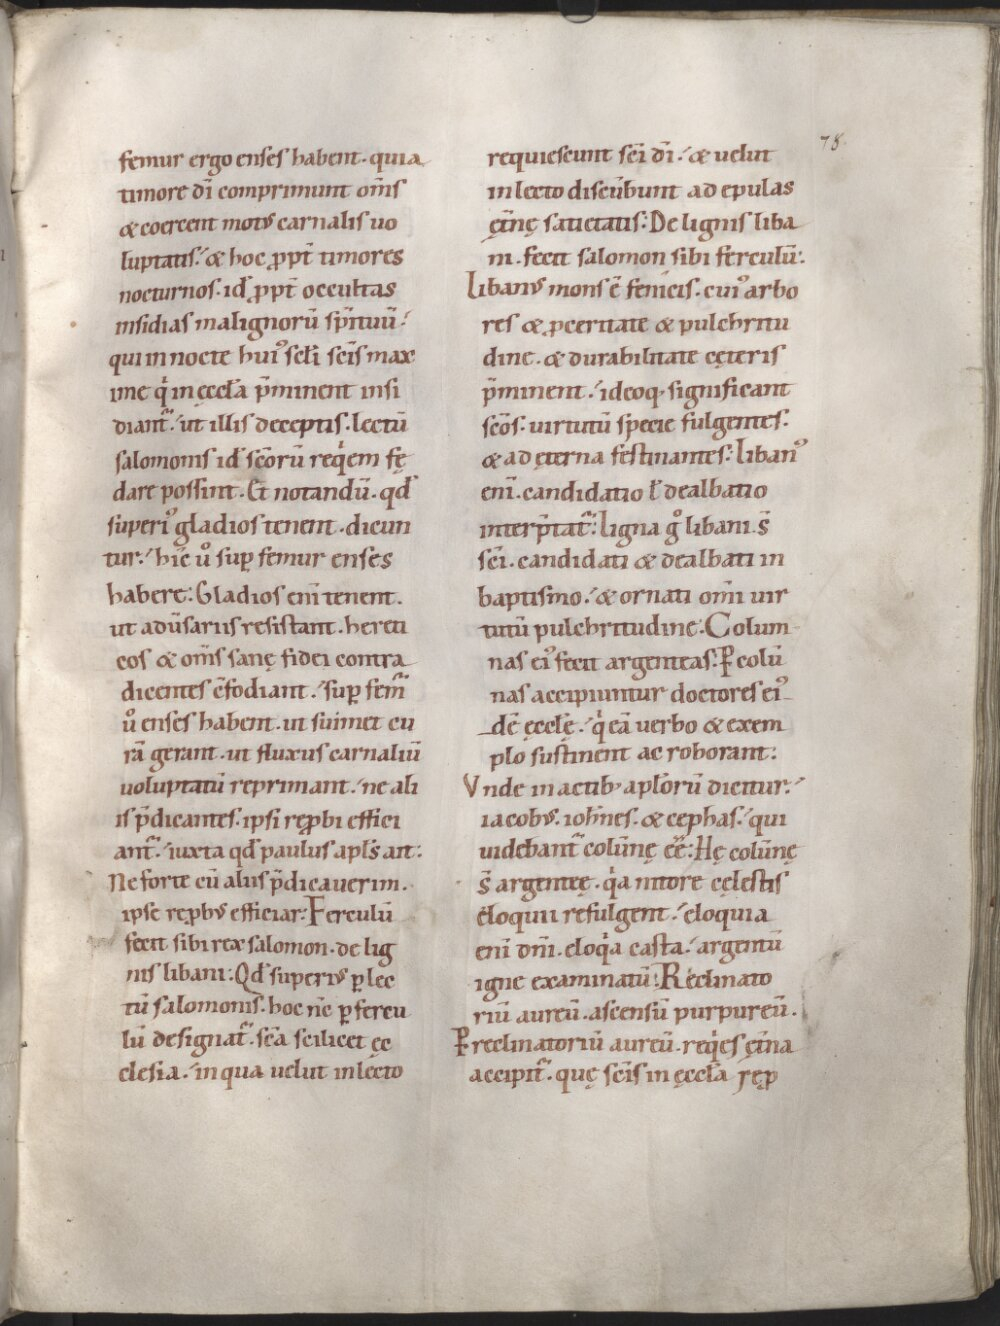 78.
femur ergo enses habent. quia
timore dī comprimunt om̄s
& coercent motus carnalis uo
luptatis. & hoc ꝓpt̄ timores
nocturnos. id̄ ꝓpt̄ occultas
insidias malignorū sp̄ituū.
qui in nocte hui᾿ sc̄li sc̄is max
ime q̇ in ęccl̄a p̄minent insi
diant̄. ut illis deceptis. lectū
salomonis id̄ sc̄orū req̇em fę
dare possint. Et notandū. qd̄
superi᾿ gladios tenent. dicun
tur. hic̄ ů sup̱ femur enses
habere: Gladios enī tenent.
ut adūsariis resistant. hereti
cos & om̄s sanę fidei contra
dicentes c̄fodiant. sup̱ fem̄
ů enses habent. ut suimet cu
rā gerant. ut fluxus carnaliū
uoluptatū reprimant. ne ali
is p̄dicantes. ipsi reꝓbi effici
ant̄. iuxta qd̄ paulus apl̄s ait:
Ne forte cū aliis p̄dicauerim.
ipse reꝓbus efficiar: Ferculū
fecit sibi rex salomon. de lig
nis libani: Qd̄ superius ꝑ lec
tū salomonis. hoc nc̄ ꝑ fercu
lū designat̄. sc̄a scilicet ęc
clesia. in qua uelut in lecto
requiescunt sc̄i dī. & uelut
in lecto discūbunt ad epulas
ęt̄nę satietatis: De lignis liba
ni. fecit salomon sibi ferculū:
Libanus mons ē fenicis. cui᾿ arbo
res & ꝓceritate & pulchritu
dine. & durabilitate cęteris
p̄minent. ideoq. significant
sc̄os. uirtutū specie fulgentes.
& ad ęterna festinantes: liban᾿
enī. candidatio l̄ dealbatio
interp̄tat̄: ligna g̊ libani. s̄
sc̄i. candidati & dealbati in
baptismo. & ornati om̄i uir
tutū pulchritudine: Colum
nas ei᾿ fecit argenteas: Ꝑ colū
nas accipiuntur doctores ei᾿
dē ęccl̄ę. q̇ eā uerbo & exem
plo sustinent ac roborant:
Vnde in actib᾿ apl̄orū dicitur.
iacobus. ioh̄nes. & cephas. qui
uidebant̄ colūnę ēē: Hę colūnę
s̄ argenteę. q̄a nitore cęlestis
eloquii refulgent. eloquia
enī dn̄i. eloq̄a casta. argentū
igne examinatū: Reclinato
riū aureū. ascensū purpureū.
Ꝑ reclinatoriū aureū. req̇es ęt̄na
accipit̄. quę sc̄is in ęccl̄a reꝓ